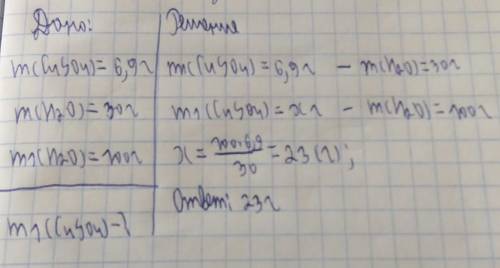 Дано:
m(CuSO4)= 6,9г
m(H2O)= 30г
m1(H2O)= 100г
m1(CuSO4)-?
Решение
m(CuSO4)= 6,9г - m(H2O)=30г
m1(CuSO4)= xг - m(H2O)=100г
x= 100·6,9/30 = 23(г);
Ответ: 23г